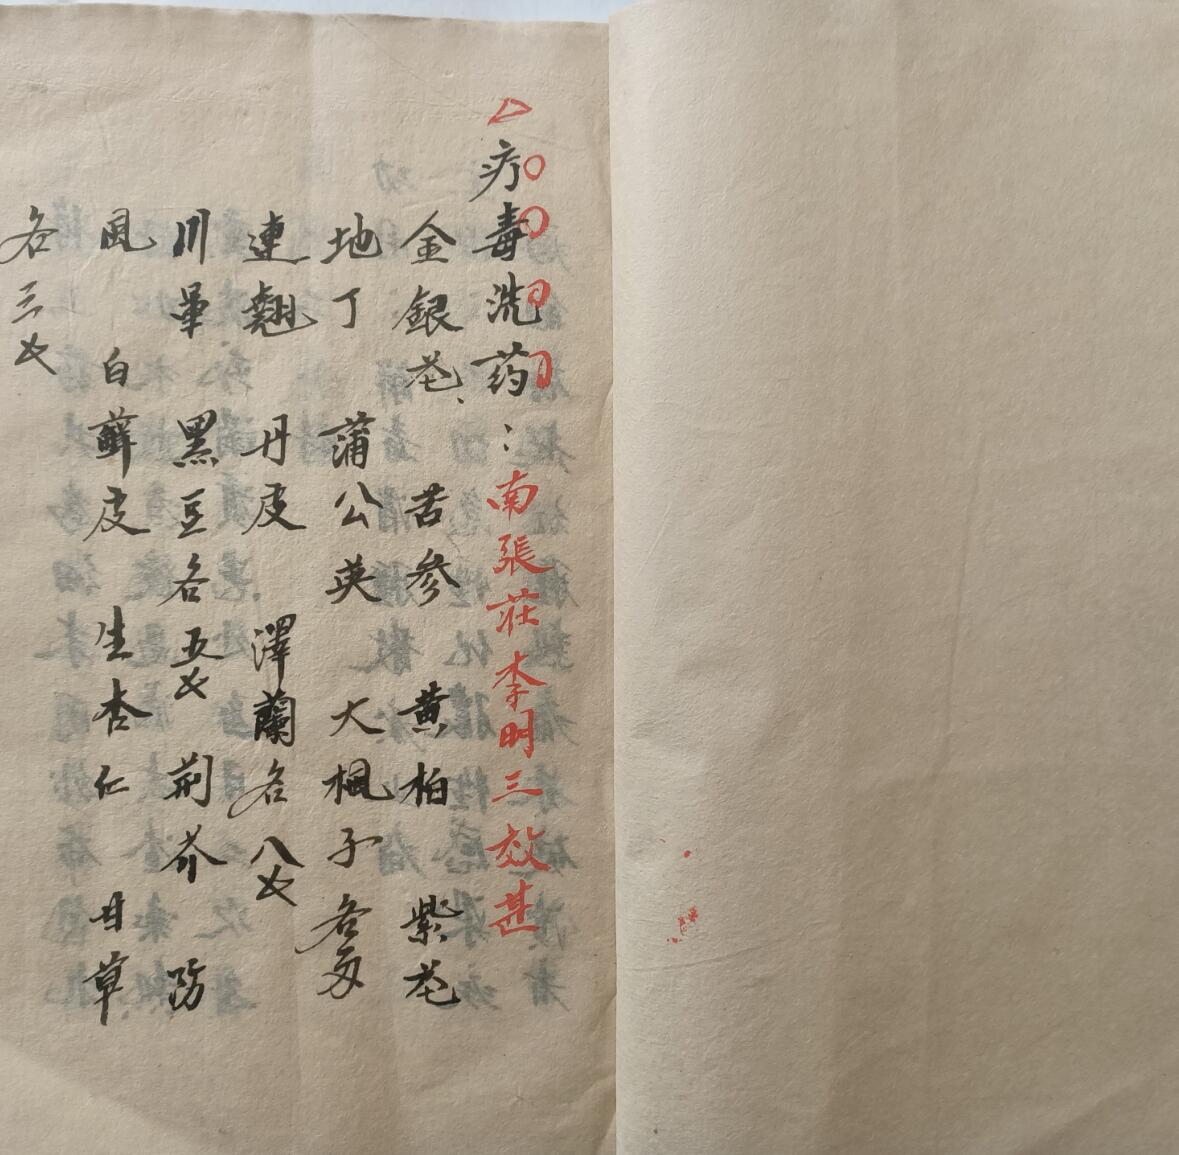 疔毒洗药：南張莊李明三效甚
金銀花、苦参 黄柏 紫花
地丁 蒲公英 大楓子各
連翹 丹皮 澤蘭各八
川 黑豆各五 荆芥 防
風 白蘚皮 生杏仁 甘草
各三